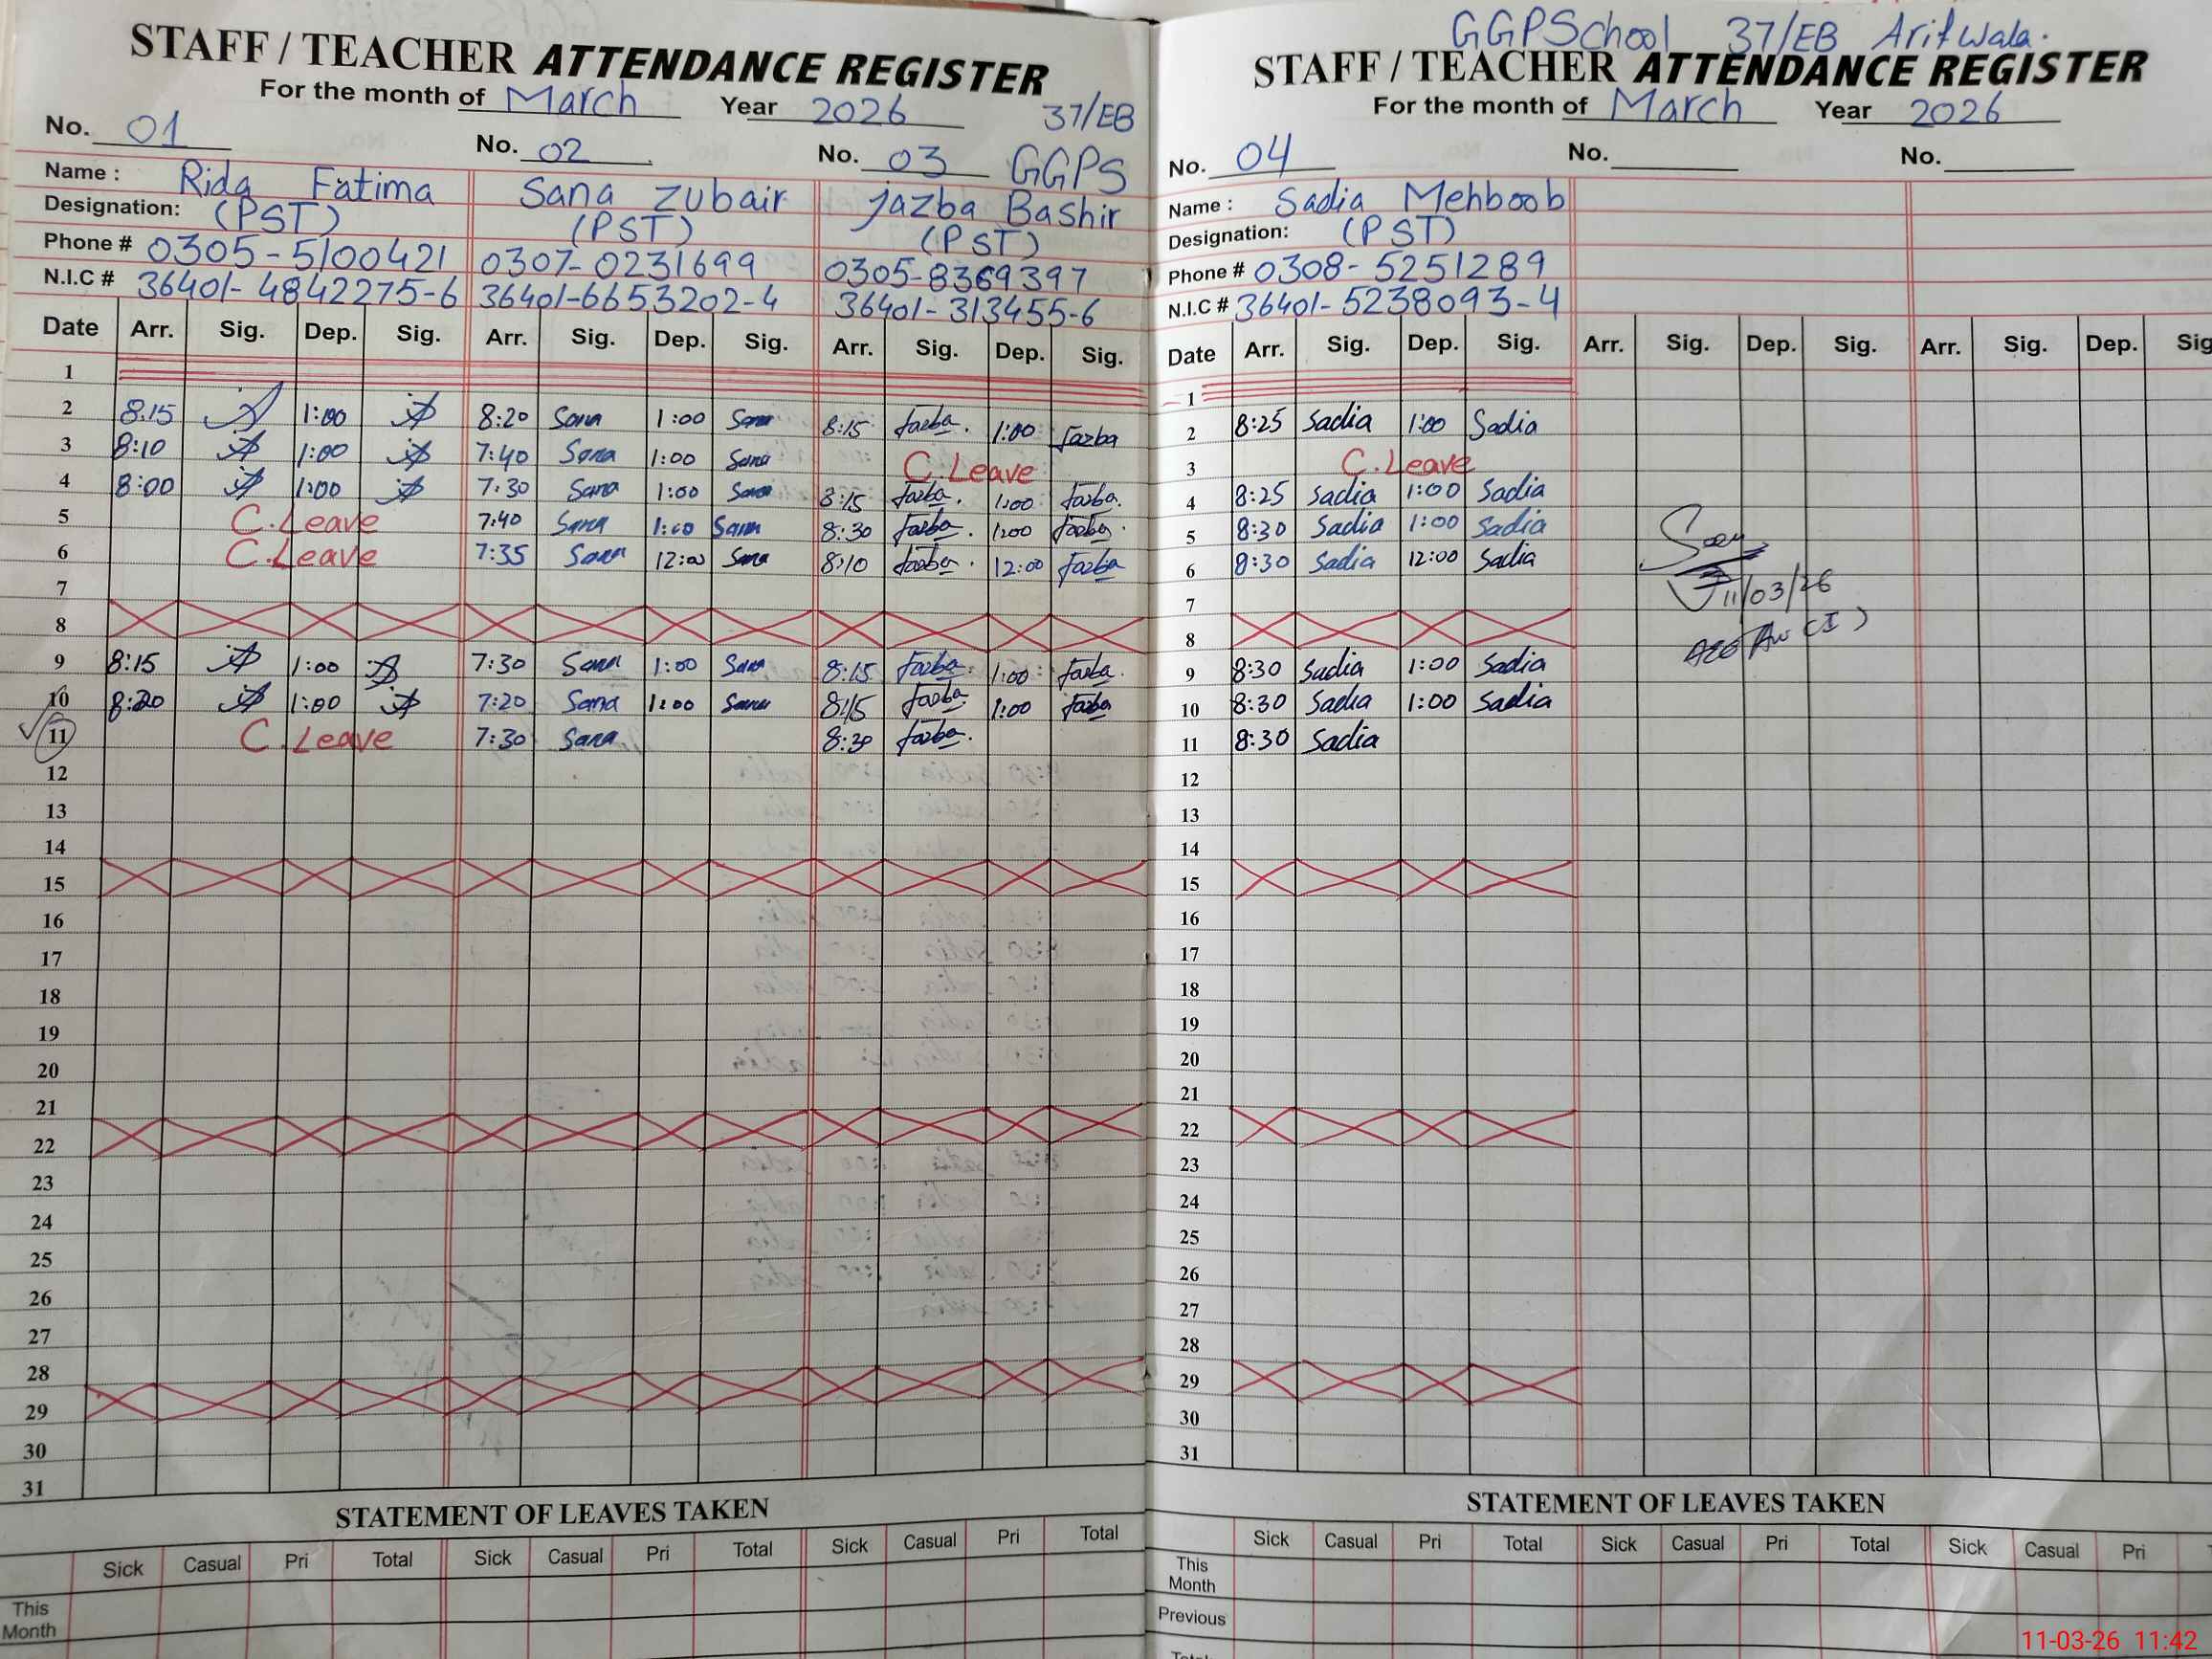 STAFF / TEACHER ATTENDANCE REGISTER
For the month of March Year 2026 37/EB
No. 01 No. 02 No. 03 GGPS
Name : Rida Fatima Sana Zubair Jazba Bashir
Designation: (PST) (PST) (PST)
Phone # 0305-5100421 0307-0231699 0305-8369397
N.I.C # 36401-4842275-6 36401-6653202-4 36401-313455-6
Date Arr. Sig. Dep. Sig. Arr. Sig. Dep. Sig. Arr. Sig. Dep. Sig.
1
2 8:15 1:00 8:20 Sana 1:00 Sana 8:15 Jazba. 1:00 Jazba
3 8:10 1:00 7:40 Sana 1:00 Sana C.Leave
4 8:00 1:00 7:30 Sana 1:00 Sana 8:15 Jazba. 1:00 Jazba.
5 C.Leave 7:40 Sana 1:00 Sana 8:30 Jazba. 1:00 Jazba.
6 C.Leave 7:35 Sana 12:00 Sana 8:10 Jazba. 12:00 Jazba
7
8
9 8:15 1:00 7:30 Sana 1:00 Sana 8:15 Jazba. 1:00 Jazba.
10 8:20 1:00 7:20 Sana 1:00 Sana 8:15 Jazba. 1:00 Jazba
11 C.Leave 7:30 Sana 8:30 Jazba.
12
13
14
15
16
17
18
19
20
21
22
23
24
25
26
27
28
29
30
31
STATEMENT OF LEAVES TAKEN
Sick Casual Pri Total Sick Casual Pri Total Sick Casual Pri Total
This Month
GGPSchool 37/EB Arifwala.
STAFF / TEACHER ATTENDANCE REGISTER
For the month of March Year 2026
No. 04 No. No.
Name : Sadia Mehboob
Designation: (PST)
Phone # 0308-5251289
N.I.C # 36401-5238093-4
Date Arr. Sig. Dep. Sig. Arr. Sig. Dep. Sig. Arr. Sig. Dep. Sig
1
2 8:25 Sadia 1:00 Sadia
3 C.Leave
4 8:25 Sadia 1:00 Sadia
5 8:30 Sadia 1:00 Sadia
6 8:30 Sadia 12:00 Sadia
7 11/03/26
8 (I)
9 8:30 Sadia 1:00 Sadia
10 8:30 Sadia 1:00 Sadia
11 8:30 Sadia
12
13
14
15
16
17
18
19
20
21
22
23
24
25
26
27
28
29
30
31
STATEMENT OF LEAVES TAKEN
Sick Casual Pri Total Sick Casual Pri Total Sick Casual Pri
This Month
Previous
11-03-26 11:42